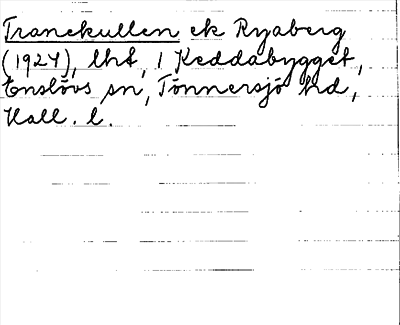 Tranekullen ek Ryaberg
(1927), lht, 1 Keddabygget,
Enslövs sn, Tönnersjö hd,
Hall. l.